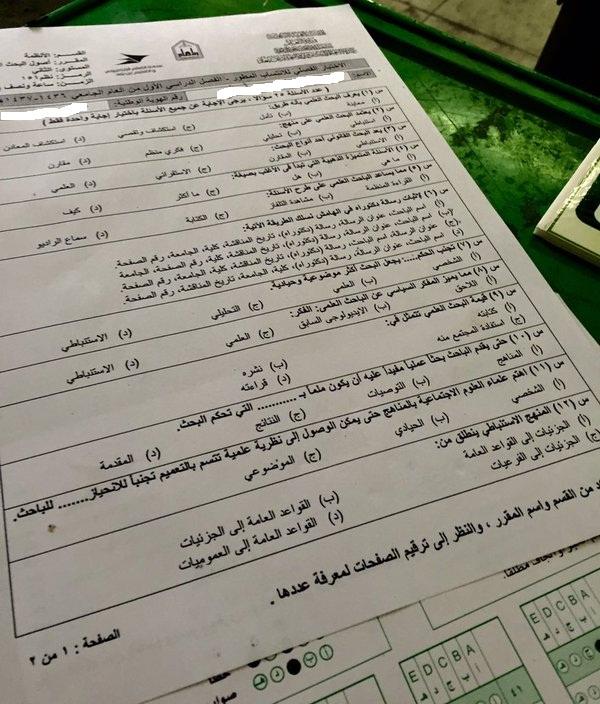 القسم: الأنظمة
المقرر: أصول البحث
المستوى: الثاني
الرمز: نظم
الزمن: ساعة ونصف
الاختبار الفصلي للانتساب المطور - الفصل الدراسي الأول من العام الجامعي ١٤٣٦-١٤٣٧هـ
الاسم: رقم الهوية الوطنية:
سؤال: يرجى الإجابة عن جميع الأسئلة باختيار إجابة واحدة فقط )
س (١) يعرف البحث العلمي بأنه طريق:
أ) معاينة ب) تأمل ج) استكشاف وتقصي د) استكشاف المعادن
س (٢) يعتمد البحث العلمي على منهج:
أ) استنباطي ب) تحليلي ج) فكري منظم د) مقارن
س (٣) يعد البحث القانوني أحد أنواع البحث:
أ) الاستنباطي ب) المقارن ج) الاستقرائي د) العلمي
س (٤) الأسئلة المتميزة الذهبية التي تبدأ في الأغلب بصيغة:
أ) ما هي ب) هل ج) ما أكثر د) كيف
س (٥) مما يساعد الباحث العلمي على طرح الأسئلة:
أ) القراءة المنظمة ب) مشاهدة التلفاز ج) الكتابة د) سماع الراديو
س (٦) لإثبات رسالة دكتوراه في الهامش نسلك الطريقة الآتية:
أ) اسم الباحث، عنوان الرسالة، رسالة (دكتوراه)، تاريخ المناقشة، كلية، الجامعة، رقم الصفحة.
ب) اسم الباحث، عنوان الرسالة، رسالة (دكتوراه)، تاريخ المناقشة، كلية، رقم الصفحة، الجامعة
ج) عنوان الرسالة، اسم الباحث، رسالة (دكتوراه)، كلية، الجامعة، تاريخ المناقشة، رقم الصفحة.
د) اسم الباحث، عنوان الرسالة، رسالة (دكتوراه)، كلية، الجامعة، تاريخ المناقشة، رقم الصفحة.
س (٧) تجنب الحكم..... يجعل البحث أكثر موضوعية وحيادية.
أ) الشخصي ب) العلمي ج) التحليلي د) الاستنباطي
س (٨) مما يميز المفكر السياسي عن الباحث العلمي: الفكر:
أ) اللاحق ب) الايديولوجي السابق ج) العلمي د) الاستنباطي
س (٩) قيمة البحث العلمي تتمثل في:
أ) كتابته ب) نشره
ج) استفادة المجتمع منه د) قراءته
س (١٠) حتى يقدم الباحث بحثا عمليا مفيدا عليه أن يكون ملما بـ .......... التي تحكم البحث.
أ) المناهج ب) التوصيات ج) النتائج د) المقدمة
س (١١) اهتم علماء العلوم الاجتماعية بالمناهج حتى يمكن الوصول إلى نظرية علمية تتسم بالتعميم تجنبا للانحياز....... للباحث.
أ) الشخصي ب) الحيادي ج) الموضوعي
س (١٢) المنهج الاستنباطي ينطلق من:
أ) الجزئيات إلى القواعد العامة ب) القواعد العامة إلى الجزئيات
ج) الجزئيات إلى الفرعيات د) القواعد العامة إلى العموميات
د من القسم واسم المقرر ، والنظر إلى ترقيم الصفحات لمعرفة عددها .
الصفحة : ١ من ٢
مطلقا.
E D C B A
هـ د ج ب أ
E D C B A
هـ د ج ب أ
٤١